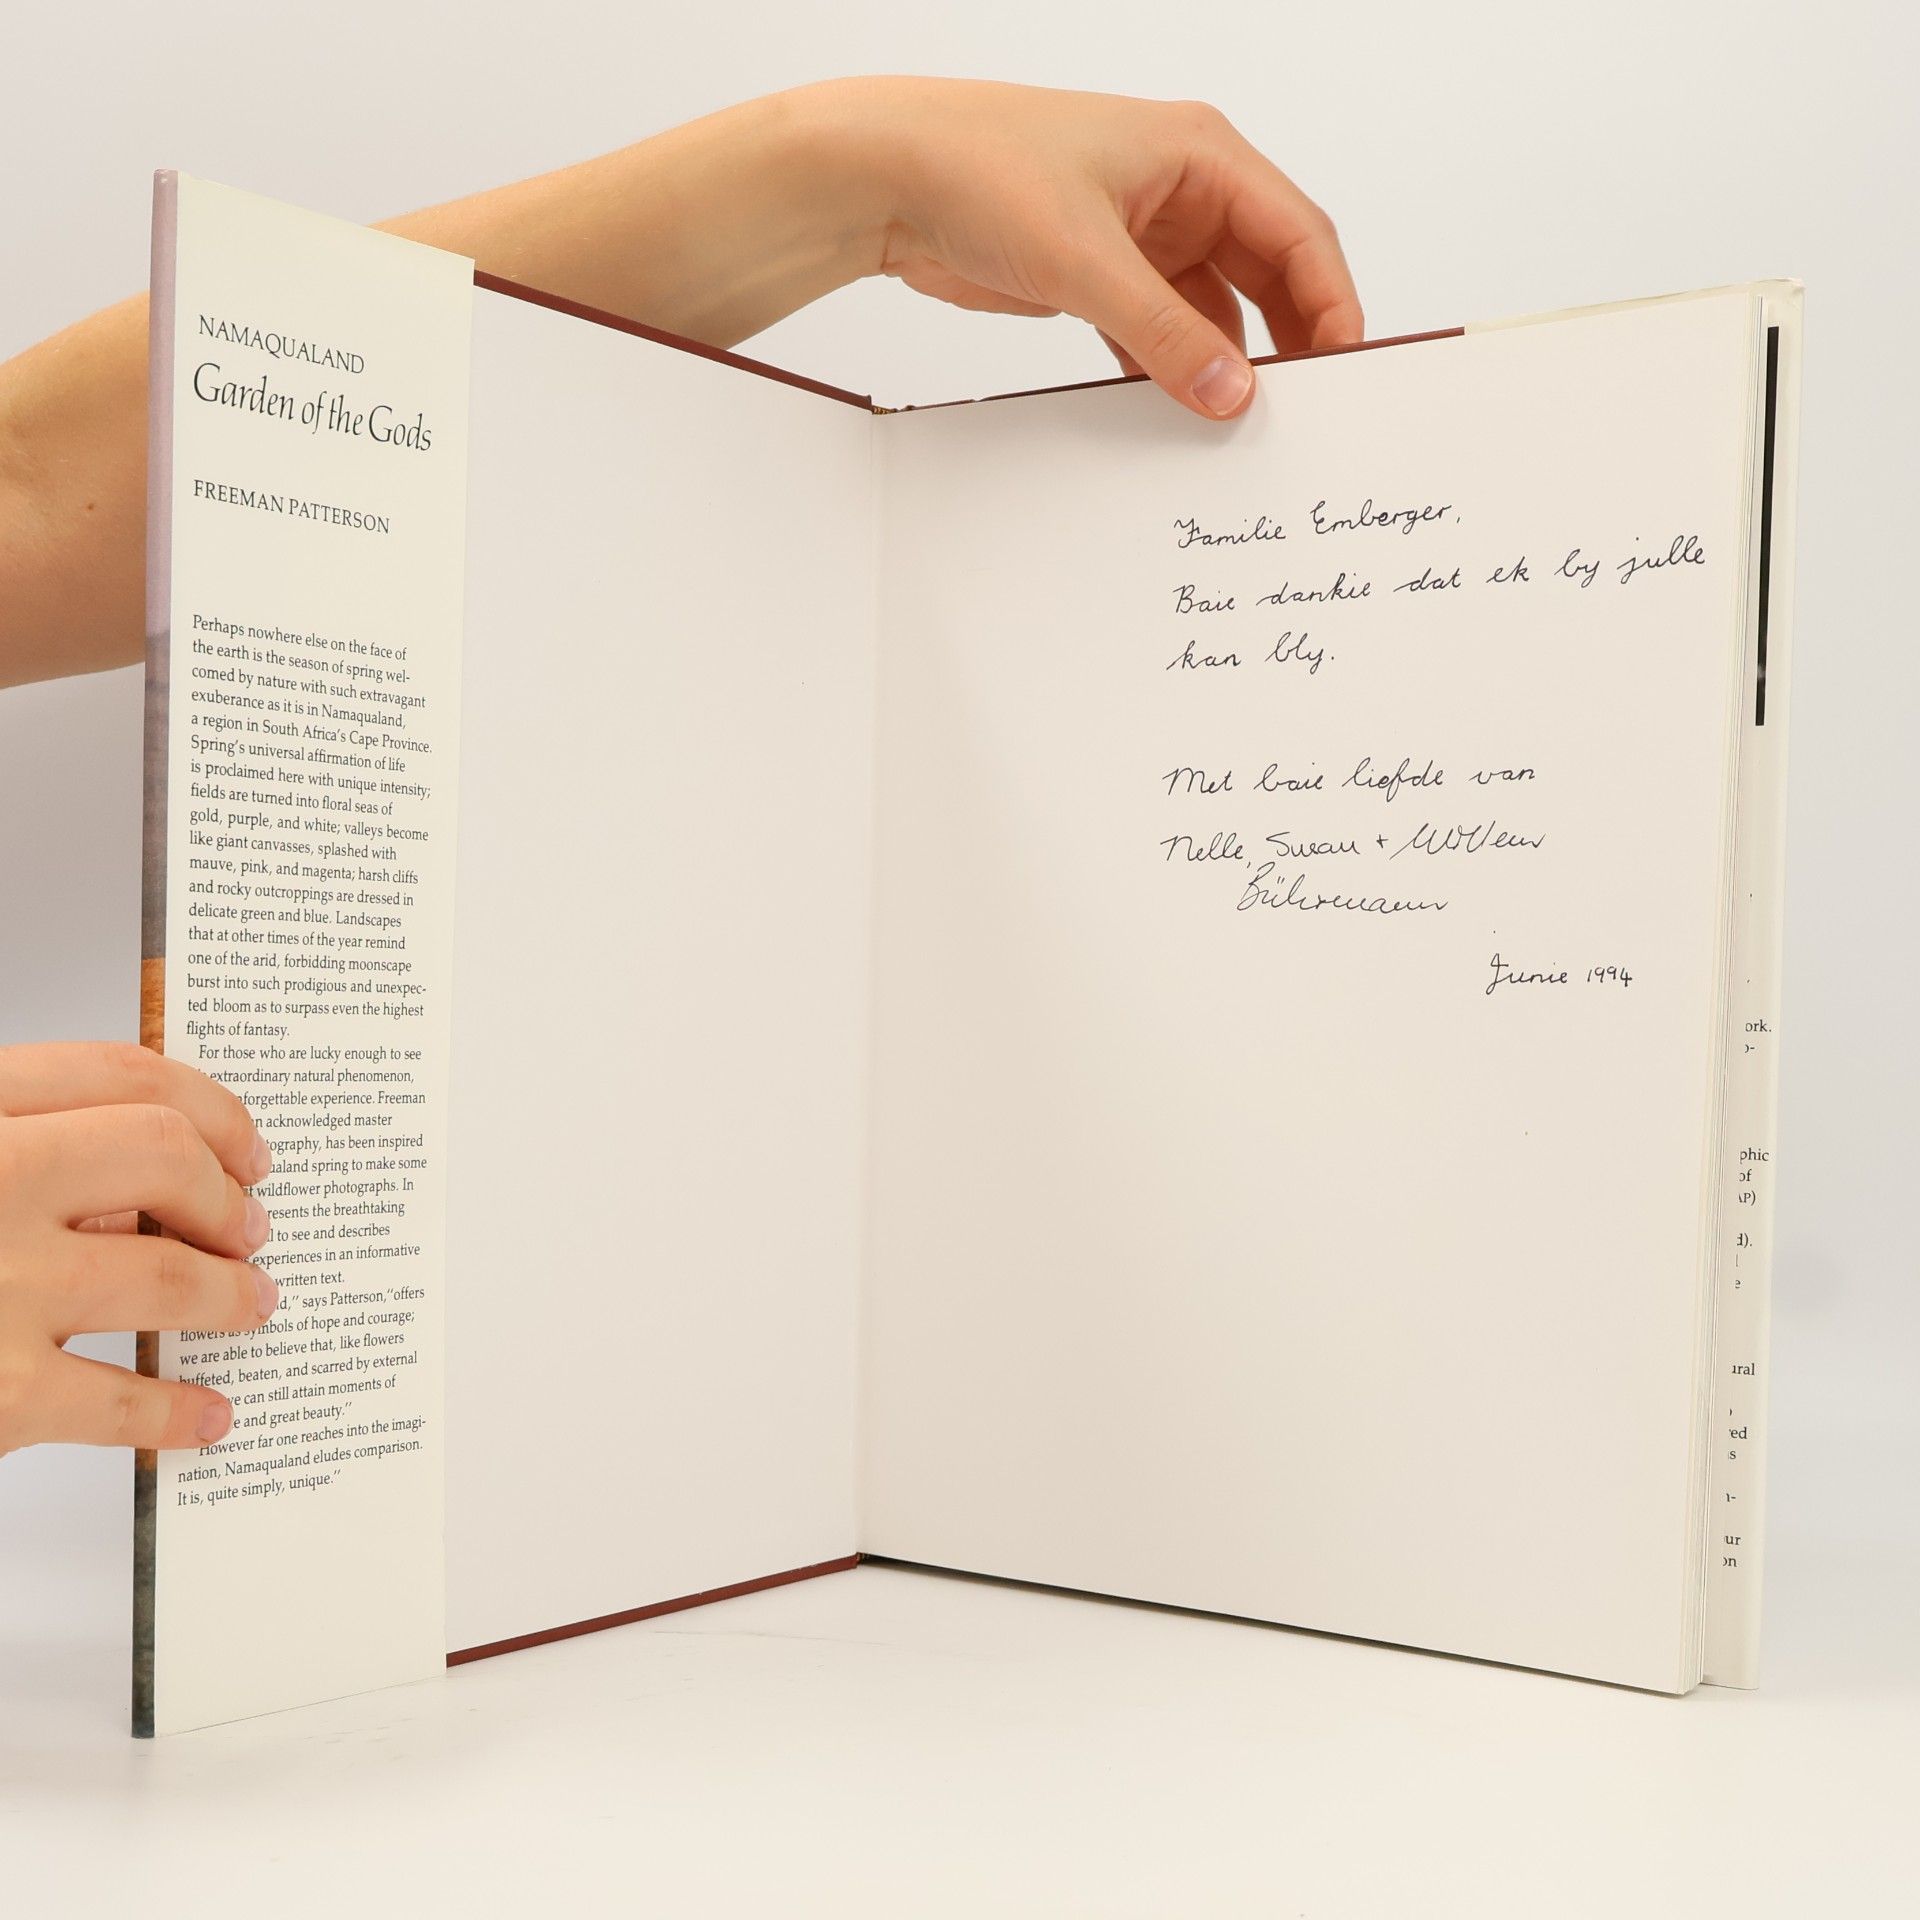 NAMAQUALAND
Garden of the Gods
FREEMAN PATTERSON
Perhaps nowhere else on the face of
the earth is the season of spring wel-
comed by nature with such extravagant
exuberance as it is in Namaqualand,
a region in South Africa's Cape Province.
Spring's universal affirmation of life
is proclaimed here with unique intensity;
fields are turned into floral seas of
gold, purple, and white; valleys become
like giant canvasses, splashed with
mauve, pink, and magenta; harsh cliffs
and rocky outcroppings are dressed in
delicate green and blue. Landscapes
that at other times of the year remind
one of the arid, forbidding moonscape
burst into such prodigious and unexpec-
ted bloom as to surpass even the highest
flights of fantasy.
For those who are lucky enough to see
extraordinary natural phenomenon,
forgettable experience. Freeman
acknowledged master
tography, has been inspired
ualand spring to make some
wildflower photographs. In
resents the breathtaking
to see and describes
experiences in an informative
written text.
says Patterson, "offers
flowers as symbols of hope and courage;
we are able to believe that, like flowers
buffeted, beaten, and scarred by external
we can still attain moments of
and great beauty."
However far one reaches into the imagi-
nation, Namaqualand eludes comparison.
It is, quite simply, unique."
Familie Emberger,
Baie dankie dat ek by julle
kan bly.
Met baie liefde van
Nelle, Susan + Willem
Bührmann
Junie 1994
ork.
o-
phic
of
AP)
d).
e
ural
red
s
n-
ur
on